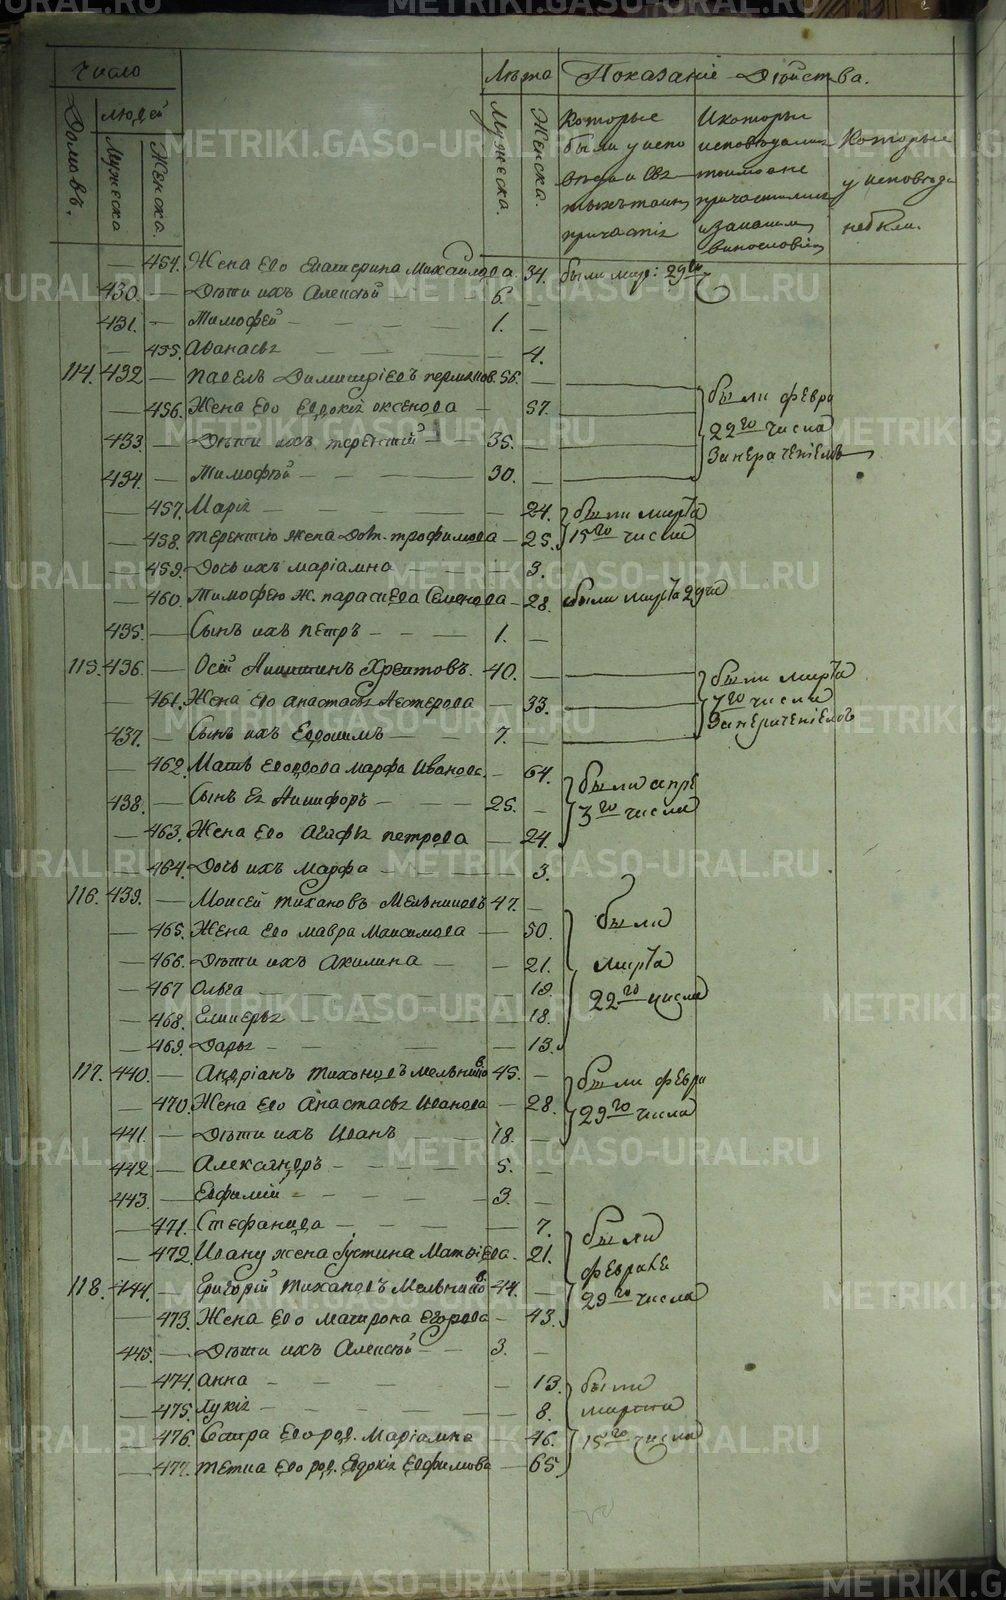 Число
Лѣта Показаніе Дѣйства.
Домовъ. людей
Мужеска Женска. Мужеска. Женска.
Которые были у исповѣди и Святыхъ таинъ причастія
И которые исповѣдались токмо а не причастились и за какимъ винословіемъ
Которые у исповѣди не были.
— 454. Жена Его Екатерина Михайлова. 34. были мар: 29го
430. — Дѣти ихъ Алексѣй — — 6.
431. — Тимофей — — — — 1. —
— 455. Афанасья — — — — 4.
114. 432 — Павелъ Димитріевъ пермяков. 56. —
— 456. Жена Его Евдокія аксенова — 57.
433. — Дѣти ихъ терентій — — 35. —
434. — Тимофѣй — — — 30. —
были февра
22го числа
За нерачениемъ
— 457. Марія — — — — 24. были марта
— 458. терентію жена Дом. трофимова — 25. 15го числа
— 459. Дочь ихъ маріамна — — — 3.
— 460. Тимофею ж. параскева Семенова — 28. были марта 29 чи
435. — Сынъ ихъ петръ — — — 1. —
115. 436. — Осій Никитинъ Хрептовъ. 40. —
— 461. Жена Его анастасья Нестерова — 33.
437. — Сынъ ихъ Евдокимъ — 7. —
были марта
7го числа
За нерачениемъ
— 462. Мать Евордова марфа Иванова. — 64. были апре
438. — Сынъ Ея Никифоръ — — — 25. — 3го числа
— 463. Жена Его Агафья петрова — 24.
— 464. Дочь ихъ марфа — — — — 3.
116. 439. — Моисей тихановъ Мельниковъ 47. —
— 465. Жена Его мавра Максимова — 50. были
— 466. Дѣти ихъ Акилина — — 21. марта
— 467 Ольга — — — — 19. 22го числа
— 468. Гликерья — — — — 18.
— 469. Дарья — — — — 13.
117. 440. — Андріанъ тихановъ мельников 45. — были февра
— 470. Жена Его Анастасья Иванова — 28. 29го числа
441. — Дѣти ихъ Иванъ 18. —
442. — Александръ — — — — 5. —
443. — Евфимій — — — — 3. —
— 471. Стефанида — — — — 7. были
— 472. Ивану жена Густина Матвіева. 21. февраля
118. 444. — Григорій тихановъ Мельников 44. — 29го числа
— 473. Жена Его матрона Егорова — 43.
445. — Дѣти ихъ Алексѣй — — 3. —
— 474. анна — — — — 13. были
— 475. Лукія — — — — 8. марта
— 476. Сестра Его род. Маріамна — 46. 15го числа
— 477. тетка Его род. Евдокія Евфимова — 65.
METRIKI.GASO-URAL.RU